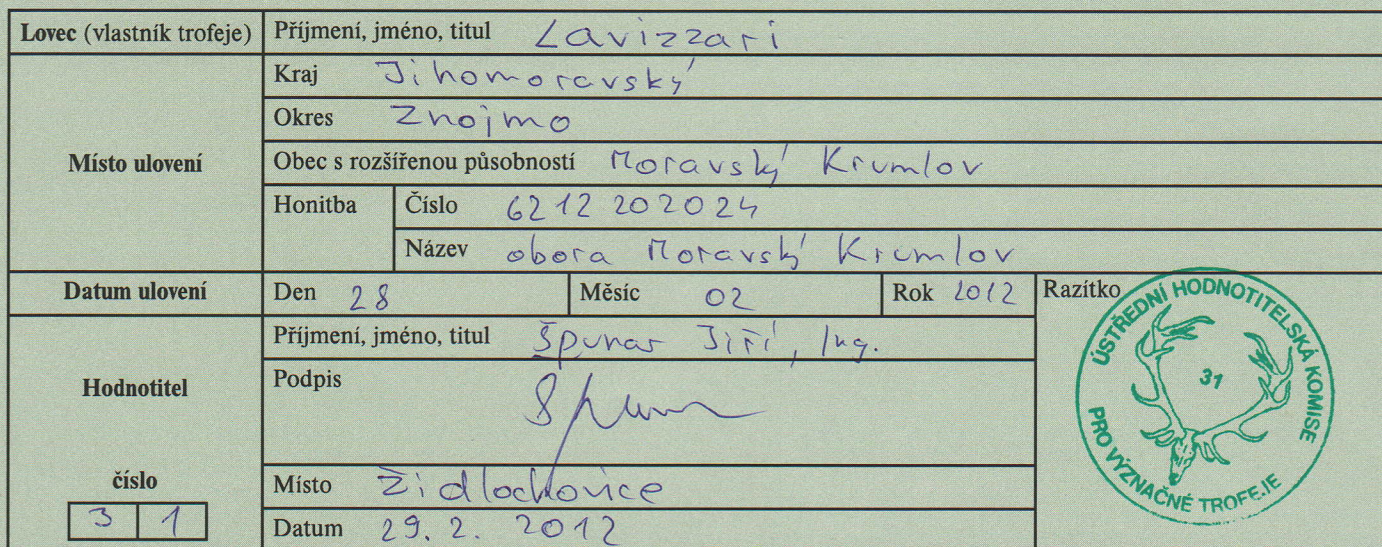 Lovec (vlastník trofeje) Příjmení, jméno, titul Lavizzari
Kraj Jihomoravský
Okres Znojmo
Místo ulovení Obec s rozšířenou působností Moravský Krumlov
Honitba Číslo 6212202024
Název obora Moravský Krumlov
Datum ulovení Den 28 Měsíc 02 Rok 2012 Razítko
Příjmení, jméno, titul Špunar Jiří, Ing.
Hodnotitel Podpis
číslo Místo Židlochovice
3 1 Datum 29. 2. 2012
ÚSTŘEDNÍ HODNOTITELSKÁ KOMISE
31
PRO VÝZNAČNÉ TROFEJE